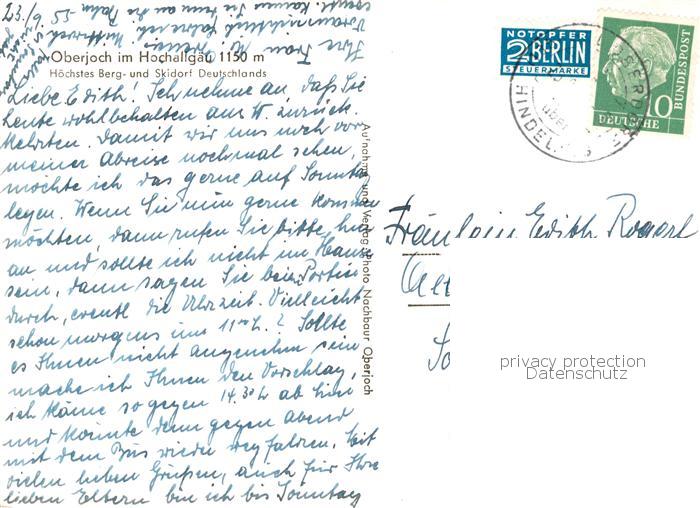 23./9. 55
Oberjoch im Hochallgäu 1150 m
Höchstes Berg- und Skidorf Deutschlands
Liebe Edith! Ich nehme an, daß Sie
heute wohlbehalten aus W. zurück
kehrten. Damit wir uns noch vor
meiner Abreise nochmal sehen,
möchte ich das gerne auf Sonntag
legen. Wenn Sie nun gerne kommen
möchten, dann rufen Sie bitte hier
an und sollte ich nicht im Hause
sein, dann sagen Sie beim Portier
durch, eventl. die Uhrzeit. Vielleicht
schon morgens um 11 h. ? Sollte
es Ihnen nicht angenehm sein
mache ich Ihnen den Vorschlag,
ich käme so gegen 14.30 h ab hier
und könnte dann gegen Abend
mit dem Bus wieder wegfahren. Mit
vielen lieben Grüßen, auch für Ihre
lieben Eltern bin ich bis Sonntag
Ihre Frau
Voraussichtlich fahre ich Mittwoch
Sie an die Bahn
Aufnahme und Verlag Photo Nachbaur Oberjoch
NOTOPFER
2 BERLIN
STEUERMARKE
DEUTSCHE
BUNDESPOST
10
über
HINDELANG
Fräulein Edith
privacy protection
Datenschutz